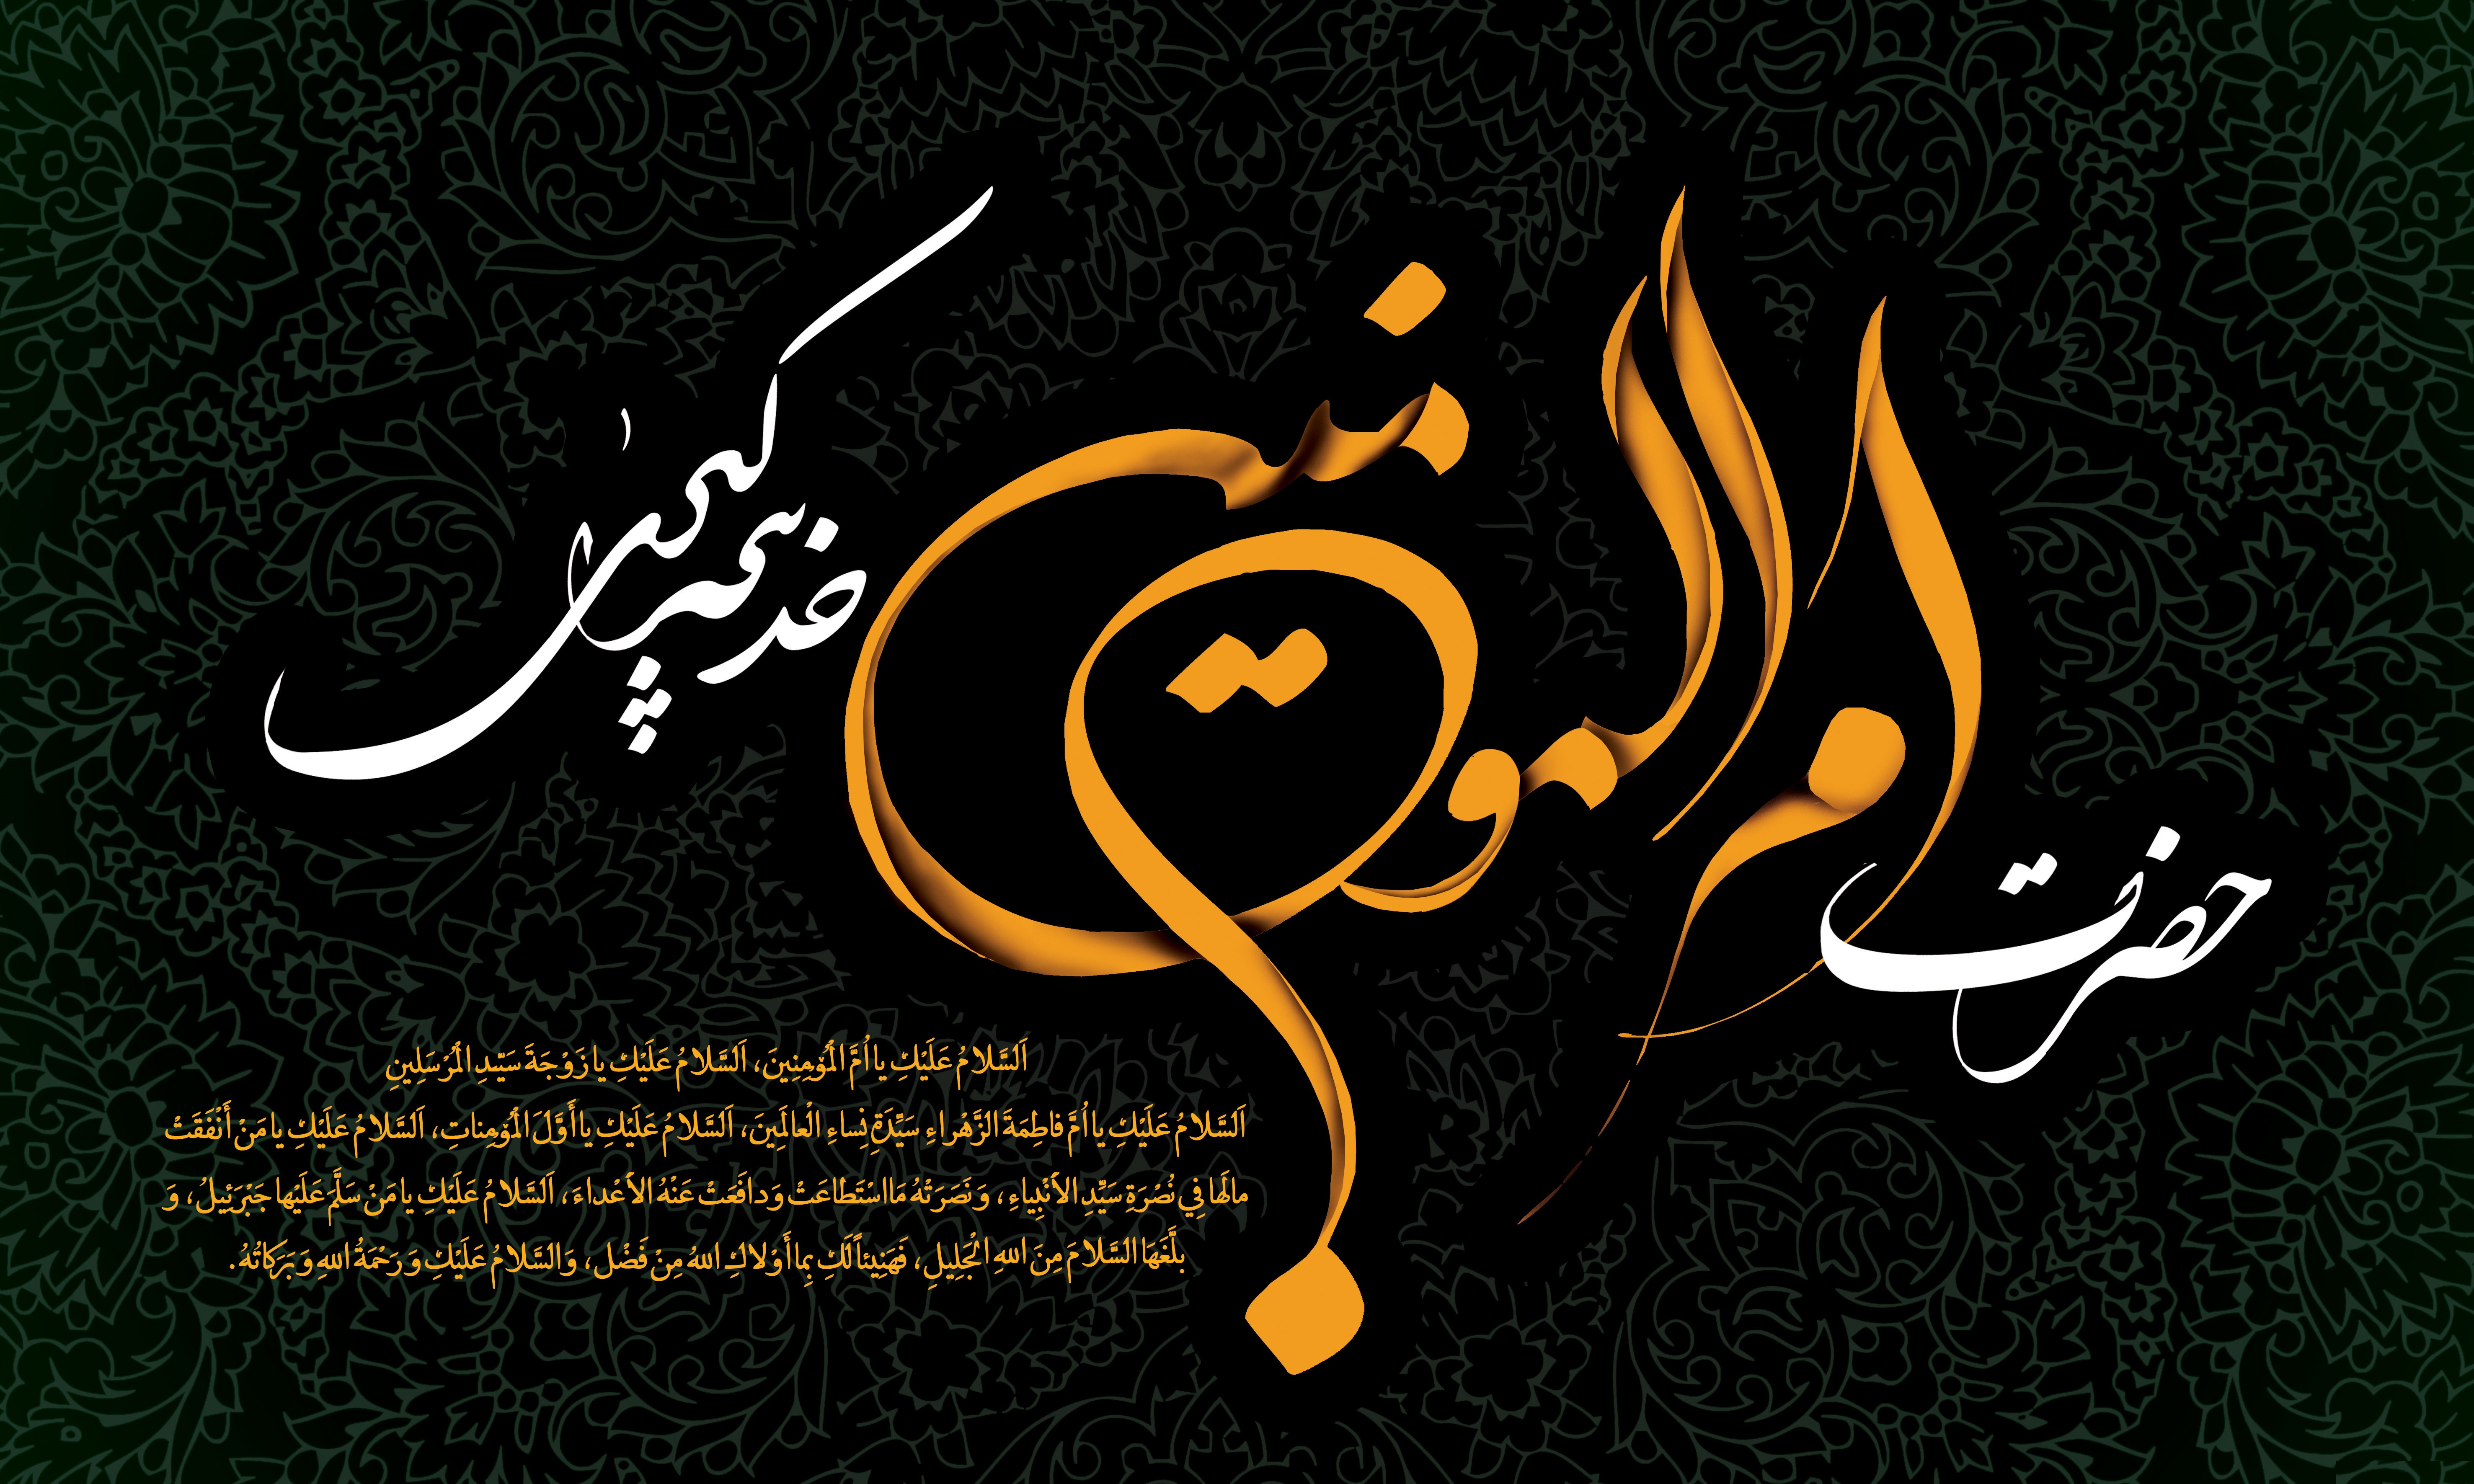 حضرت
ام المومنین
خدیجه
کبریٰ
اَلسَّلامُ عَلَيْكِ يا اُمَّ الْمُؤمِنِينَ، اَلسَّلامُ عَلَيْكِ يا زَوْجَةَ سَيِّدِ الْمُرْسَلِينِ
اَلسَّلامُ عَلَيْكِ يا اُمَّ فاطِمَةَ الزَّهْراءِ سَيِّدَةِ نِساءِ الْعالَمِينَ، اَلسَّلامُ عَلَيْكِ يا أَوَّلَ الْمُؤمِناتِ، اَلسَّلامُ عَلَيْكِ يا مَنْ أَنْفَقَتْ
مالَها فِي نُصْرَةِ سَيِّدِ الأَنْبِياءِ، وَ نَصَرَتْهُ مَا اسْتَطاعَتْ وَ دافَعَتْ عَنْهُ الأَعْداءَ، اَلسَّلامُ عَلَيْكِ يا مَنْ سَلَّمَ عَلَيْها جَبْرَئِيلُ، وَ
بلَّغَهَا السَّلامَ مِنَ اللهِ الْجَلِيلِ، فَهَنِيئاً لَكِ بِما أَوْلاكِ اللهُ مِنْ فَضْل، وَالسَّلامُ عَلَيْكِ وَ رَحْمَةُ اللهِ وَ بَرَكاتُهُ.